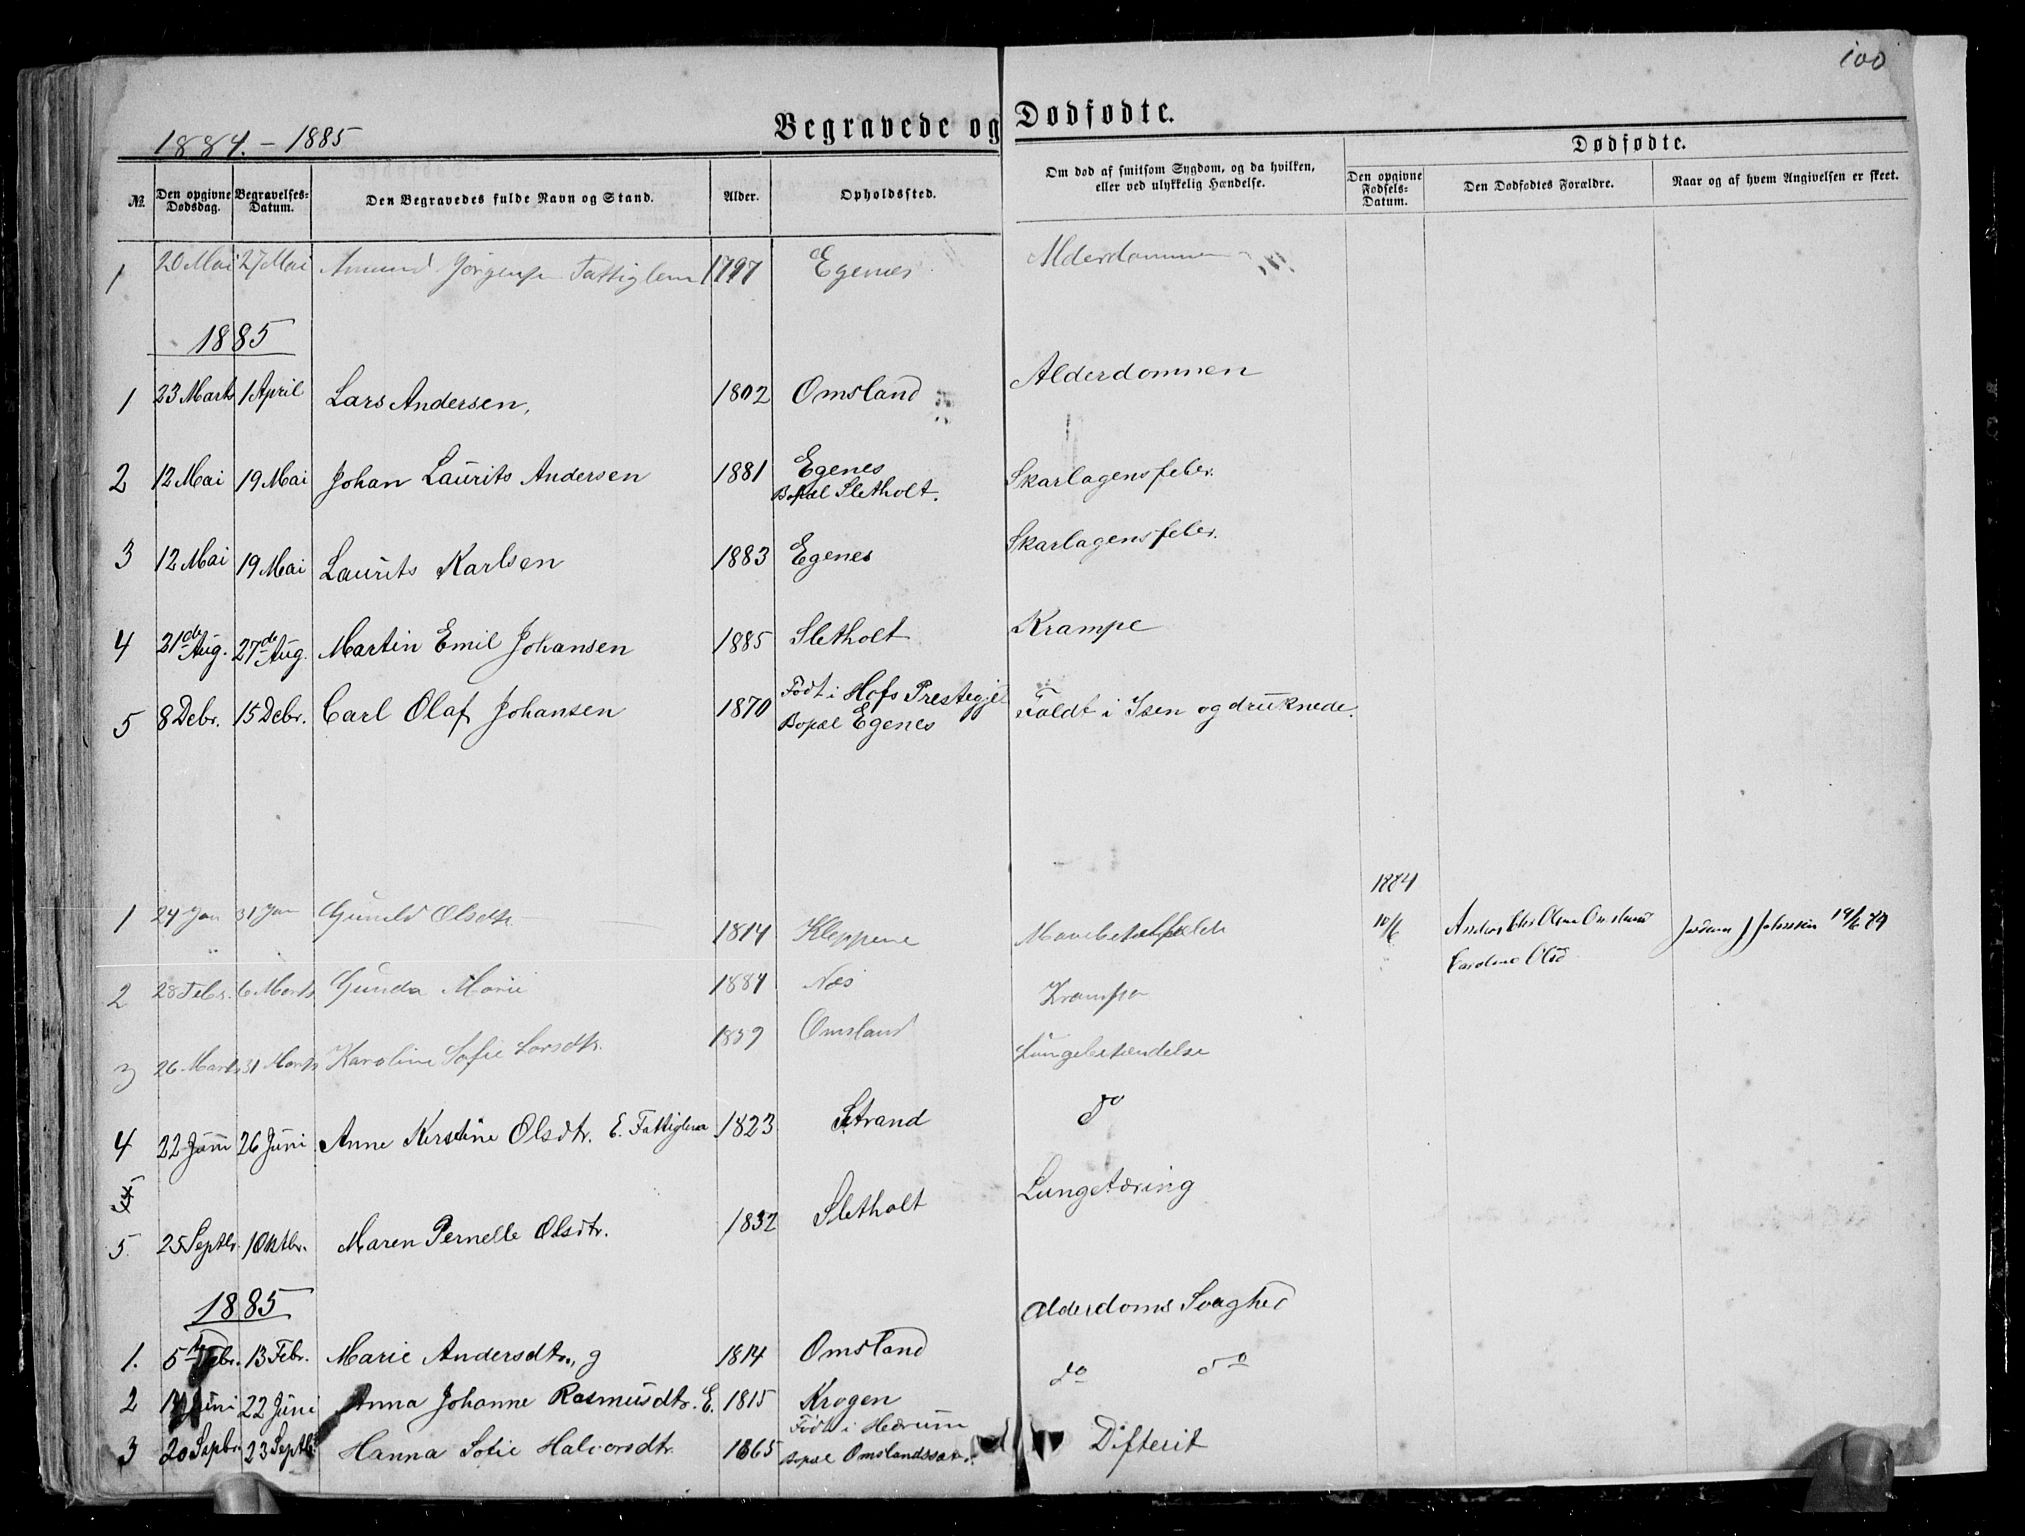 100
1884. - 1885
Begravede og Dødfødte.
№. Den opgivne Dødsdag. Begravelses-Datum. Den Begravedes fulde Navn og Stand. Alder. Opholdssted. Om død af smitsom Sygdom, og da hvilken, eller ved ulykkelig Hændelse. Dødfødte. Den opgivne Fødsels-Datum. Den Dødfødtes Forældre. Naar og af hvem Angivelsen er skeet.
1 20 Mai 27 Mai Amund Jørgensen Fattiglem 1797 Egenes Alderdommen
1885
1 23 Marts 1 April Lars Andersen, 1802 Omsland Alderdommen
2 12 Mai 19 Mai Johan Laurits Andersen 1881 Egenes Skarlagensfeber.
Bopæl Sletholt.
3 12 Mai 19 Mai Laurits Karlsen 1883 Egenes Skarlagensfeber.
4 21de Aug. 27de Aug. Martin Emil Johansen 1885 Sletholt Krampe
5 8 Debr. 15 Debr. Carl Olaf Johansen 1870 Født i Hofs Prestegjel Faldt i Isen og druknede.
Bopæl Egenes
1884
1 24 Jan 31 Jan Gunild Olsdtr 1814 Kleppene 10/6 Anders Olsen Omsland Johnsen 19/6
Caroline Olsd
2 28 Febr. 6 Marts Gunda Marie 1884 Næs Krampe
3 26 Marts 31 Marts Karoline Sofie Larsdtr. 1859 Omsland Lungebetændelse
4 22 Juni 26 Juni Anne Kirstine Olsdtr. E. Fattiglem 1823 Strand do
5
5. 25 Septbr. 1 Oktbr. Maren Pernelle Olsdtr. 1832 Sletholt Lungetæring
1885
1. 5 Febr. 13 Febr. Marie Andersdtr., g 1814 Omsland Alderdoms Svaghed
2 Juni 22 Juni Anna Johanne Rasmusdtr. E. 1815 Krogen do do
3 20 Sepbr. 23 Septbr. Hanna Sofie Halvorsdtr. 1865 Født i Hedrum Difterit
Bopæl Omslandssæt.